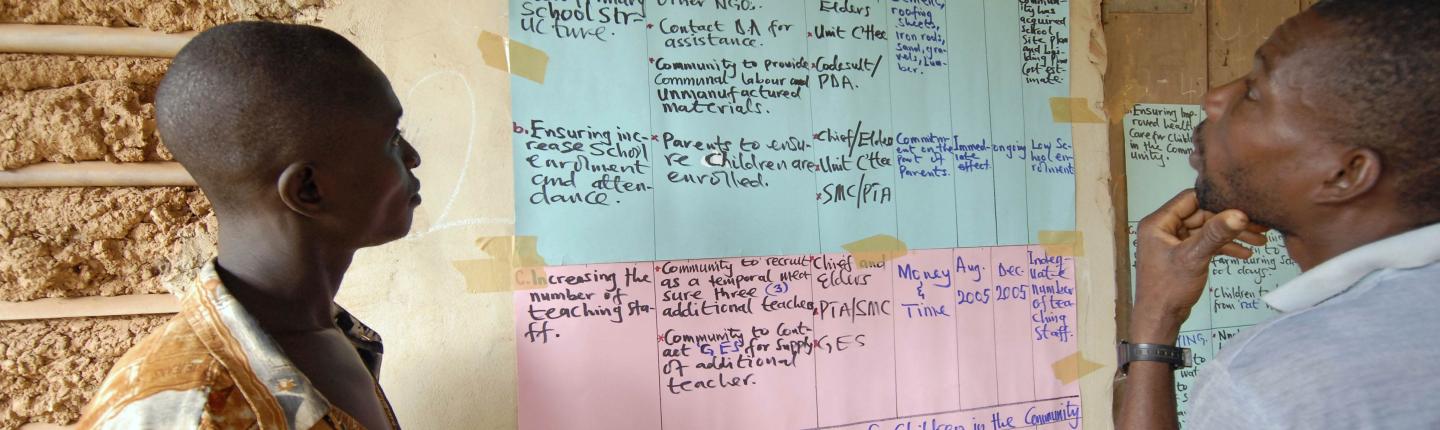 School str-
ucture.
Other NGO.
* Contact D.A for
assistance.
* Community to provide
Communal labour and
Unmanufactured
materials.
Elders
* Unit C'ttee
* Codesult/
PDA.
roofing
sheets,
iron rods,
sand, gra-
vels, lum-
ber.
acquired
school
Site plan
b. Ensuring inc-
rease School
enrolment
and atten-
dance.
* Parents to ensu-
re Children are
enrolled.
* Chief/Elders
* Unit C'ttee
* SMC/PTA
Commitm-
ent on the
part of
Parents.
Immed-
iate
effect
ongoing
Low Sc-
hool en-
rolment
C. Increasing the
number of
teaching sta-
ff.
* Community to recruit
as a temporal mea-
sure three (3)
additional teachers
* Community to Cont-
act GES for supply
of additional
teacher.
* Chief and
Elders
* PTA/SMC
* GES
Money
&
Time
Aug.
2005
Dec.
2005
Inadeq-
uate
number
of tea-
ching
Staff.
Children in the Community
Ensuring Imp-
roved health
Care for Childr
in the Comm
unity.
farm during Sc
ool days.
* Children to